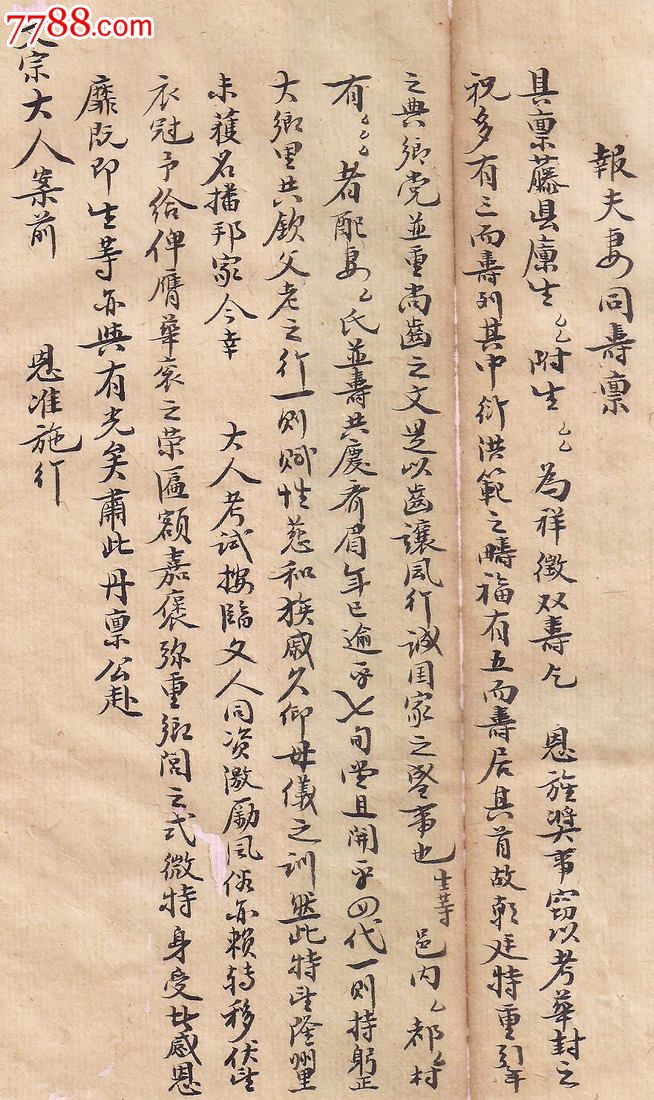 7788.com
報夫妻同壽禀
具禀藤县廪生厶厶附生厶厶為祥徵双壽乞 恩旌奨事窃以考華封之
祝多有三而壽列其中衍洪範之疇福有五而壽居其首故朝廷特重引年
之典鄉党並重尚齒之文是以齒讓風行誠国家之盛事也生等邑内厶都厶村
有厶厶厶者配妻厶氏並壽共慶齐眉年已逾乎七旬堂且開乎四代一則持躬正
大鄉里共欽父老之行一則賦性慈和族戚久仰母儀之訓然此特望隆州里
未獲名播邦家今幸 大人考試按臨文人同资激励風俗亦赖转移伏望
衣冠予給俾膺華衮之荣匾额嘉褒弥重鄉閭之式微特身受者感恩
靡既即生等亦與有光矣肅此丹禀公赴
文宗大人案前 恩准施行